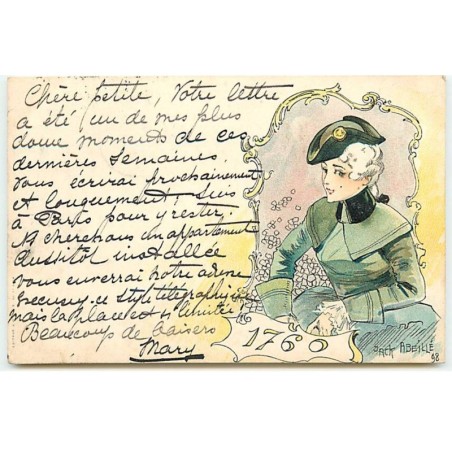 Chère petite, Votre lettre
a été un de mes plus
doux moments de ces
dernières semaines.
Vous écrirai prochainement
et longuement; suis
à Paris pour y rester.
N cherchons un appartement
Aussitôt installée
vous enverrai notre adresse
Excusez ce style télégraphique
mais la place est si limitée!
Beaucoup de baisers
Mary
1760
JACK ABEILLÉ
98